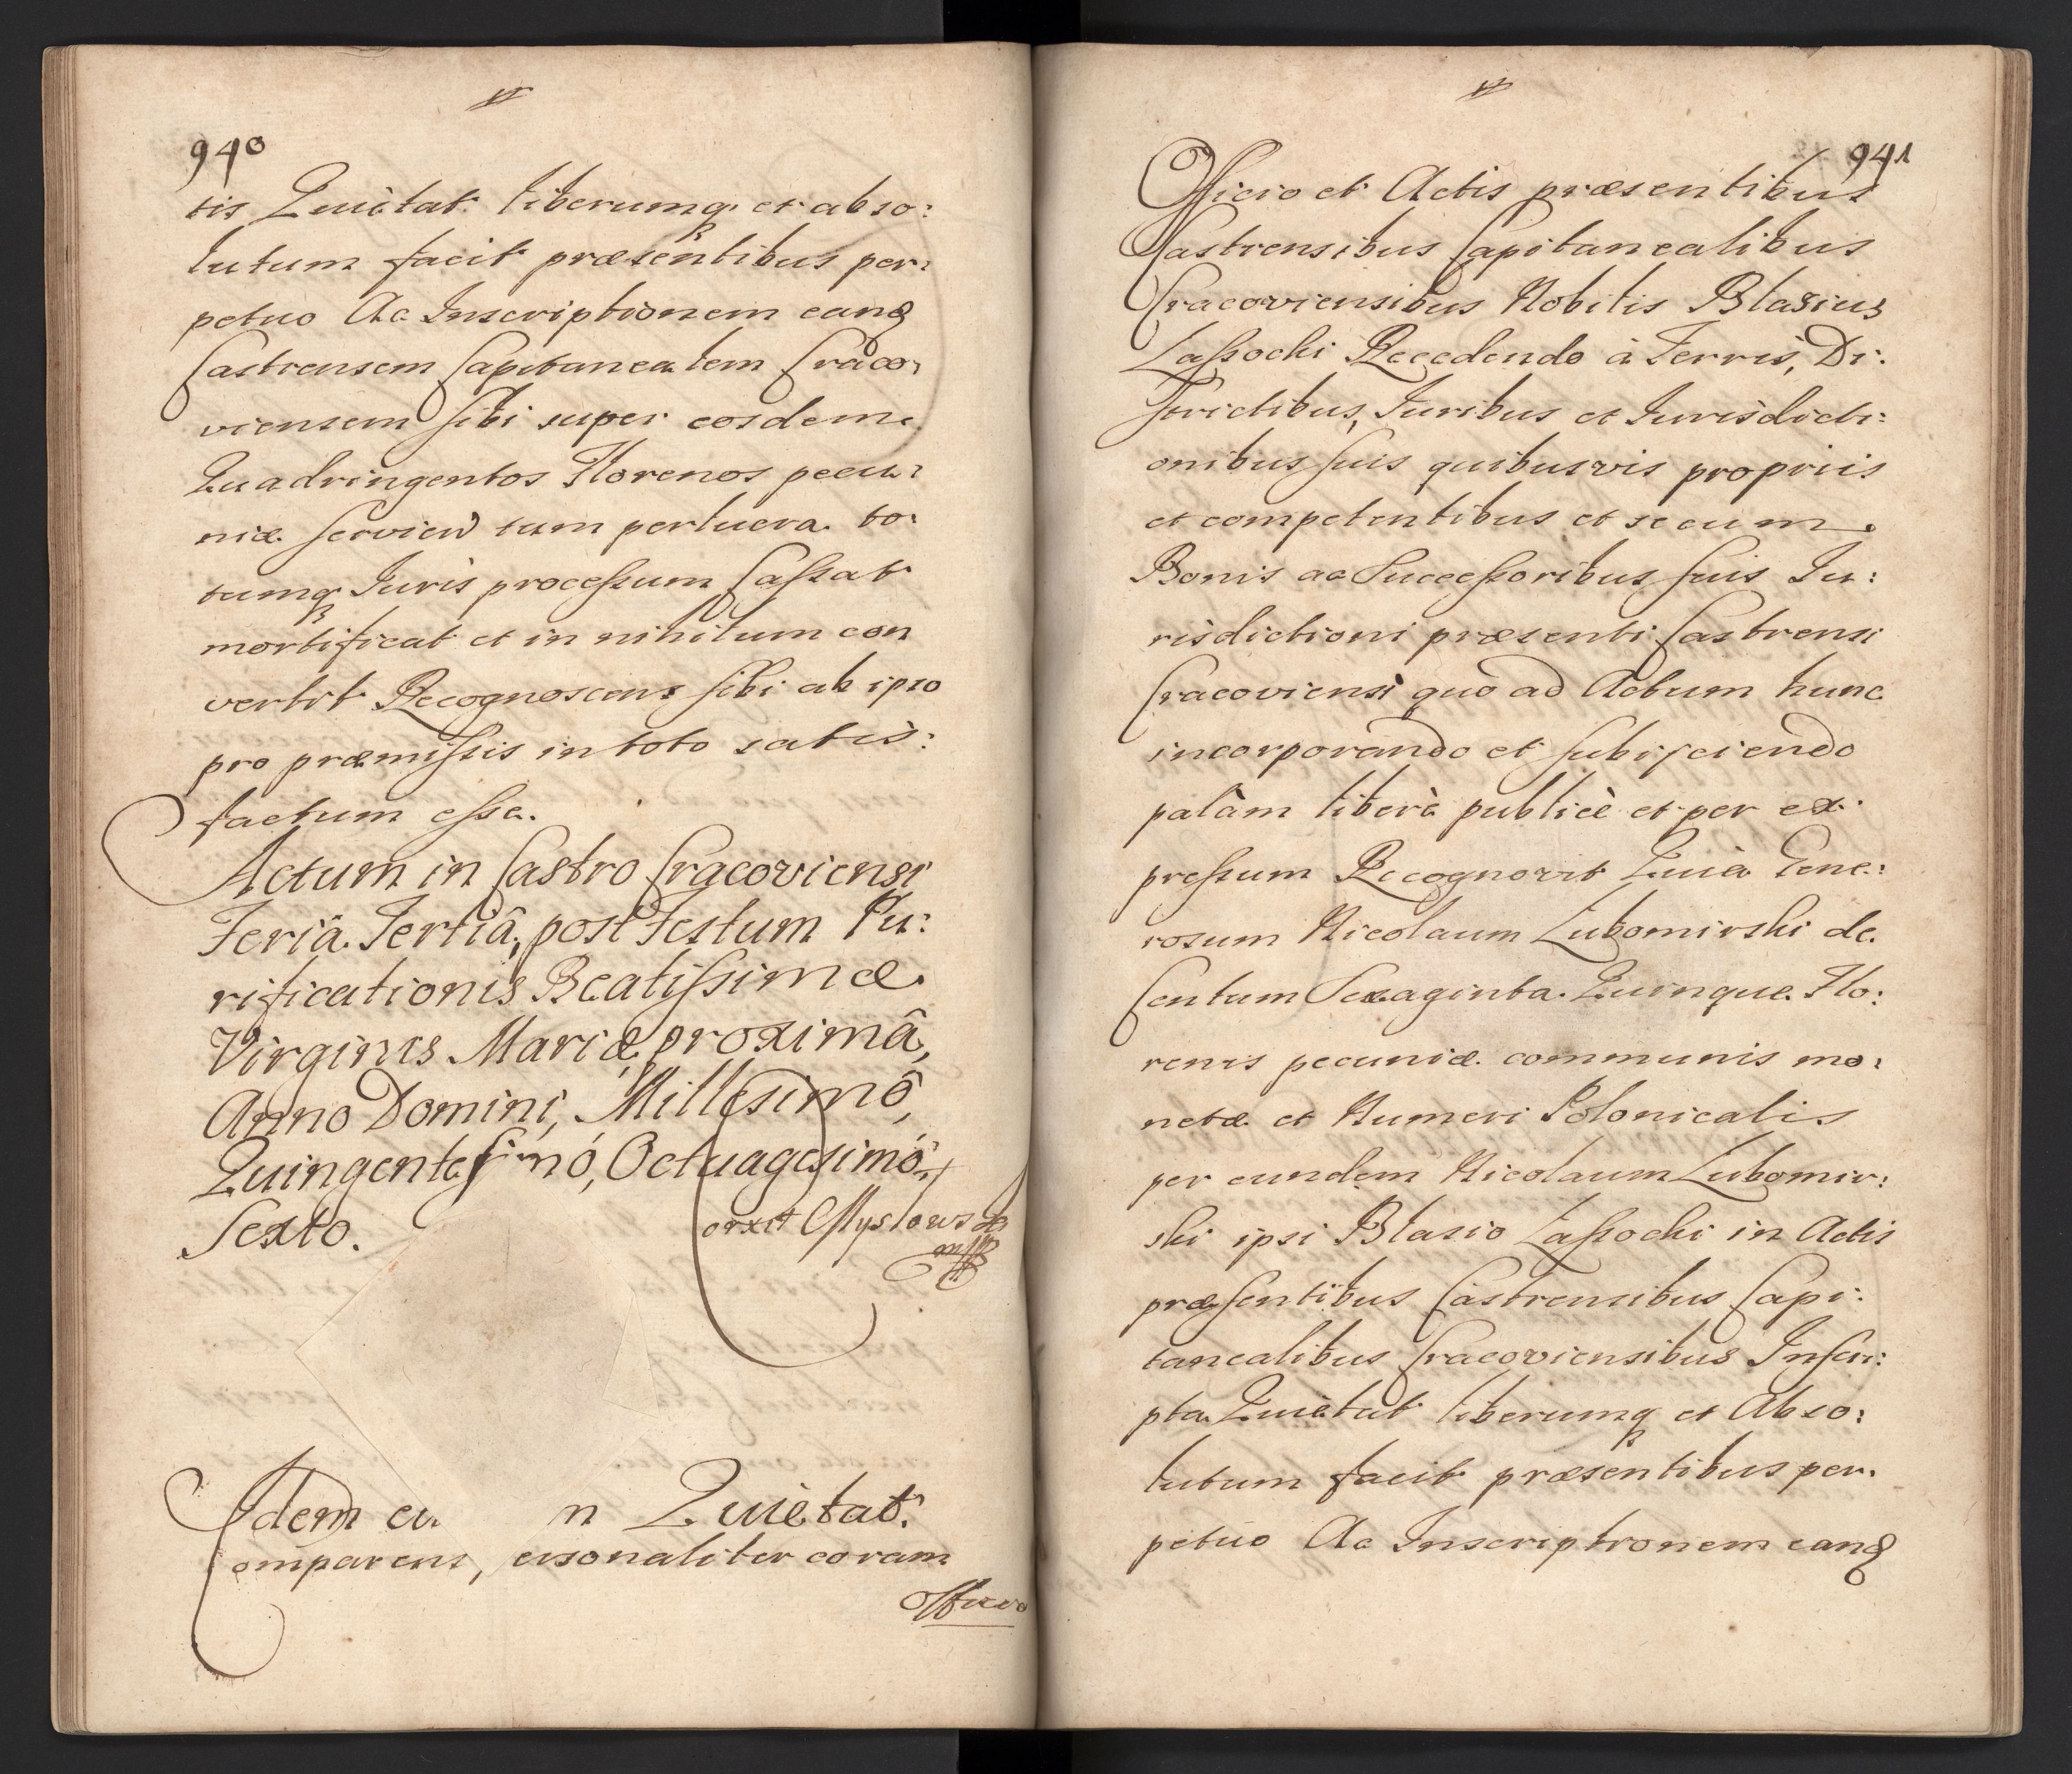 940
tis Quietat liberumq et abso:
lutum facit præsentibus per:
petuo Ac Inscriptionem eanq
Castrensem Capitanealem Craco:
viensem sibi super eosdem
Quadringentos Florenos pecu:
niæ servien tum per
tumq Juris processum Cassat
mortificat et in nihilum con
vertit Recognoscens sibi ab ipso
pro præmissis in toto satis:
factum esse.
Actum in Castro Cracoviensi
Feriâ Tertiâ, post Festum Pu:
rificationis Beatissimæ
Virginis Mariæ, proximâ,
Anno Domini, Millesimô,
Quingentesimó, Octuagesimó
Sexto.
Idem eu n Quietat.
Comparens, ersonaliter coram
Officio
941
Officio et Actis præsentibus
Castrensibus Capitanealibus
Cracoviensibus Nobilis Blasius
Lassocki Recedendo à Terris, Di:
strictibus, Juribus et Jurisdicti:
onibus suis quibusvis propriis
et competentibus et secum
Bonis ac Successoribus suis Ju:
risdictioni præsenti Castrensi
Cracoviensi quò ad Actum hunc
incorporando et subijciendo
palàm liberè publicè et per ex:
pressum Recognovit Quià Gene:
rosum Nicolaum Lubomirski de
Centum Sexaginta Quinque Flo:
renis pecuniæ communis mo:
netæ et Numeri Polonicalis
per eundem Nicolaum Lubomir:
ski ipsi Blasio Lassocki in Actis
præsentibus Castrensibus Capi:
tanealibus Cracoviensibus Inscri:
pta Quietat liberumq et Abso:
lutum facit præsentibus per:
petuo Ac Inscriptionem eanq